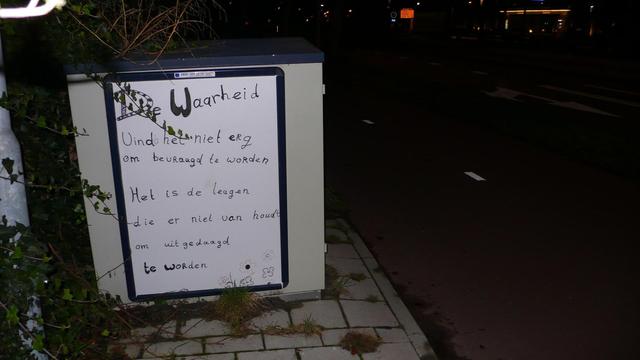 De Waarheid
Vind het niet erg
om bevraagd te worden
Het is de leugen
die er niet van houdt
om uitgedaagd
te worden